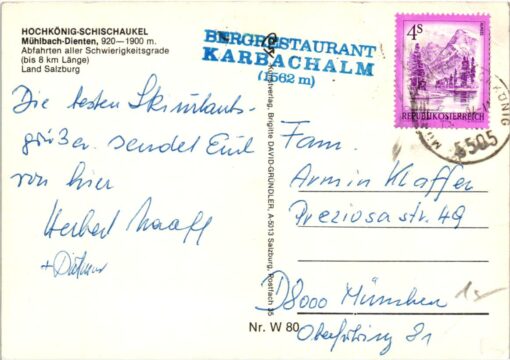 HOCHKÖNIG-SCHISCHAUKEL
Mühlbach-Dienten, 920—1900 m.
Abfahrten aller Schwierigkeitsgrade
(bis 8 km Länge)
Land Salzburg
BERGRESTAURANT
KARBACHALM
(1562 m)
4S
REPUBLIK ÖSTERREICH
5505
Die besten Skiurlaubs-
grüße sendet Euch
von hier
Herbert
+ Dietmar
Kunstverlag, Brigitte DAVID-GRÜNDLER, A-5013 Salzburg, Postfach 35
Fam.
Armin Klaffer
Preziosastr. 49
D8000 München
Oberföhring 81
Nr. W 80